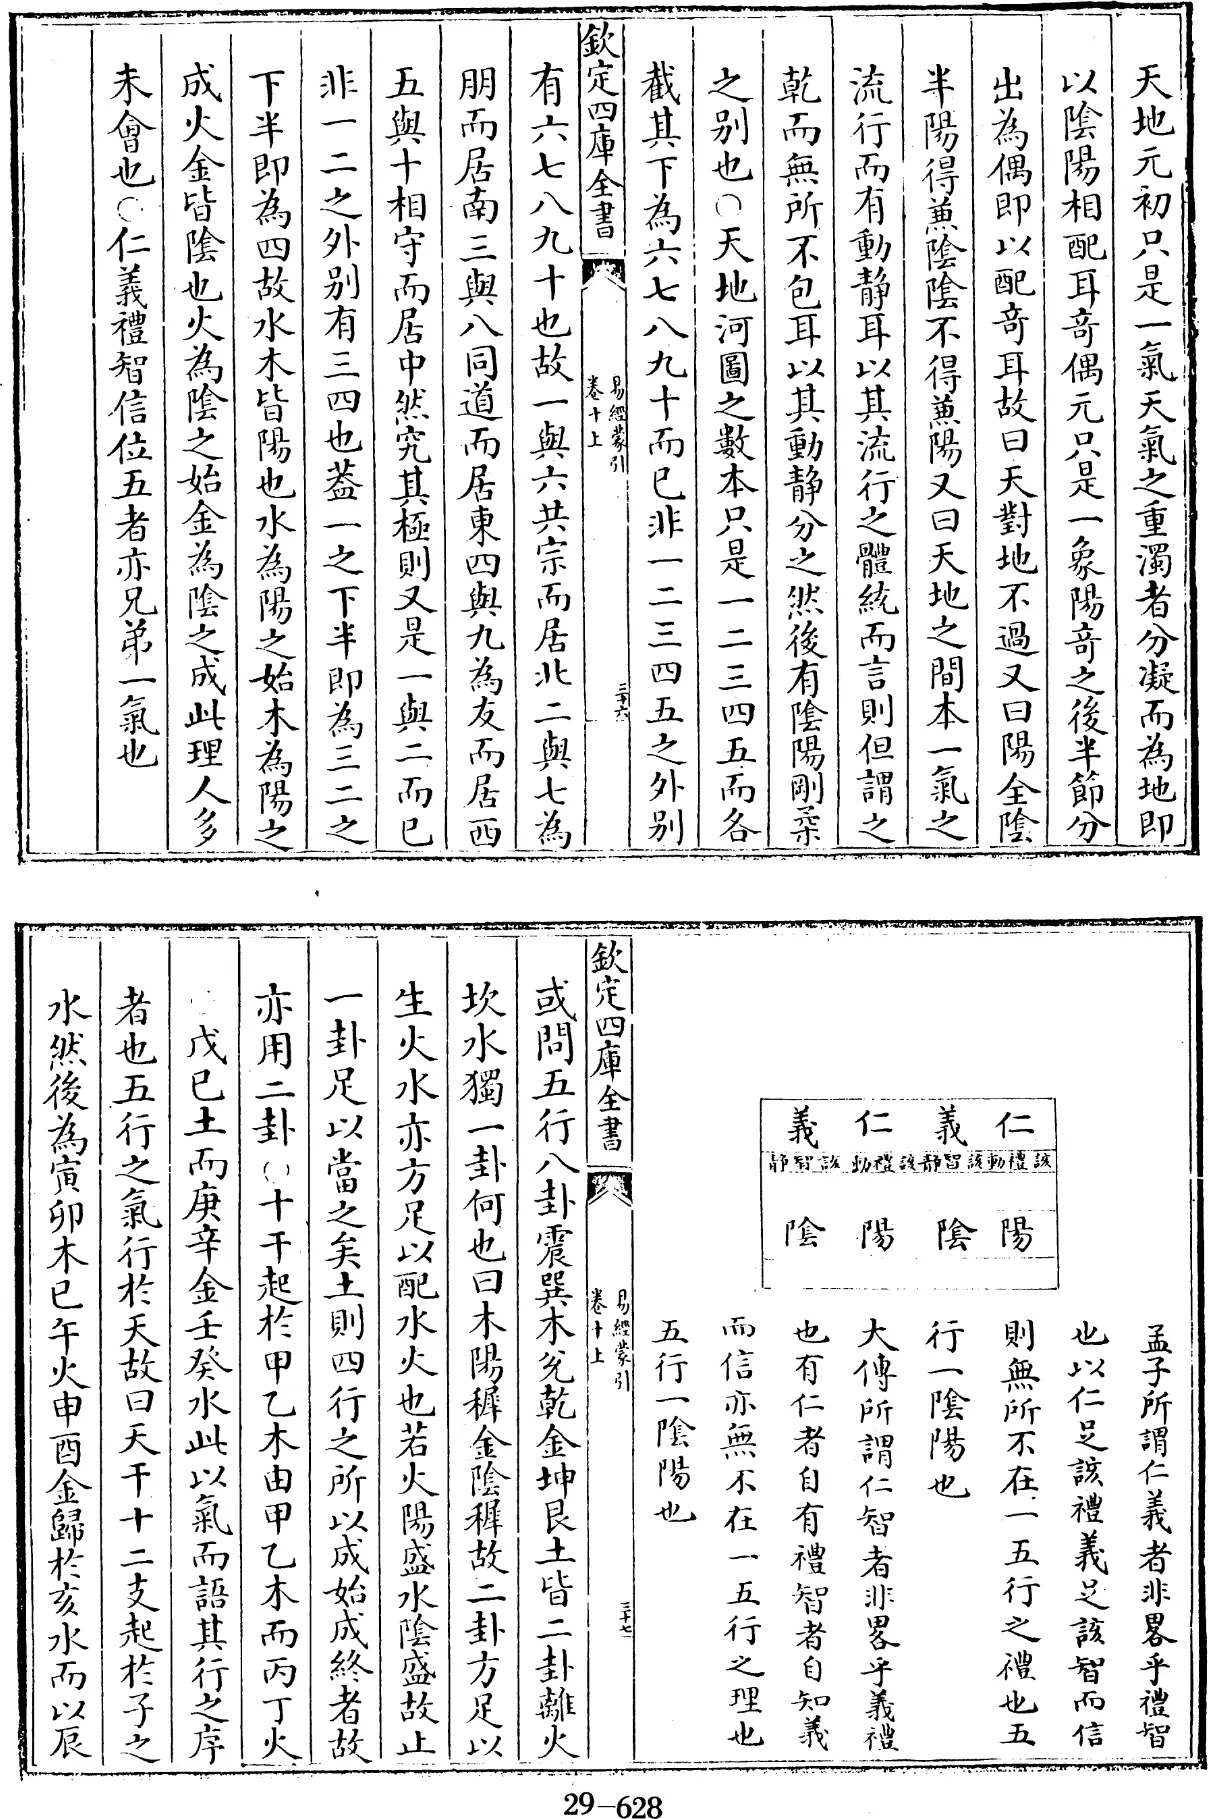 天地元初只是一氣天氣之重濁者分凝而為地即
以陰陽相配耳奇偶元只是一象陽奇之後半節分
出為偶即以配奇耳故曰天對地不過又曰陽全陰
半陽得兼陰陰不得兼陽又曰天地之間本一氣之
流行而有動靜耳以其流行之體統而言則但謂之
乾而無所不包耳以其動靜分之然後有陰陽剛柔
之别也○天地河圖之數本只是一二三四五而各
截其下為六七八九十而已非一二三四五之外别
欽定四庫全書
易經蒙引
卷十上
三十六
有六七八九十也故一與六共宗而居北二與七為
朋而居南三與八同道而居東四與九為友而居西
五與十相守而居中然究其極則又是一與二而已
非一二之外别有三四也葢一之下半即為三二之
下半即為四故水木皆陽也水為陽之始木為陽之
成火金皆陰也火為陰之始金為陰之成此理人多
未會也○仁義禮智信位五者亦兄弟一氣也
仁 義 仁 義
該禮動 該智靜 該禮動 該智靜
陽 陰 陽 陰
孟子所謂仁義者非畧乎禮智
也以仁足該禮義足該智而信
則無所不在一五行之禮也五
行一陰陽也
大傳所謂仁智者非畧乎義禮
也有仁者自有禮智者自知義
而信亦無不在一五行之理也
五行一陰陽也
欽定四庫全書
易經蒙引
卷十上
三十七
或問五行八卦震巽木兊乾金坤艮土皆二卦離火
坎水獨一卦何也曰木陽穉金陰穉故二卦方足以
生火水亦方足以配水火也若火陽盛水陰盛故止
一卦足以當之矣土則四行之所以成始成終者故
亦用二卦○十干起於甲乙木由甲乙木而丙丁火
戊己土而庚辛金壬癸水此以氣而語其行之序
者也五行之氣行於天故曰天干十二支起於子之
水然後為寅卯木巳午火申酉金歸於亥水而以辰
29-628